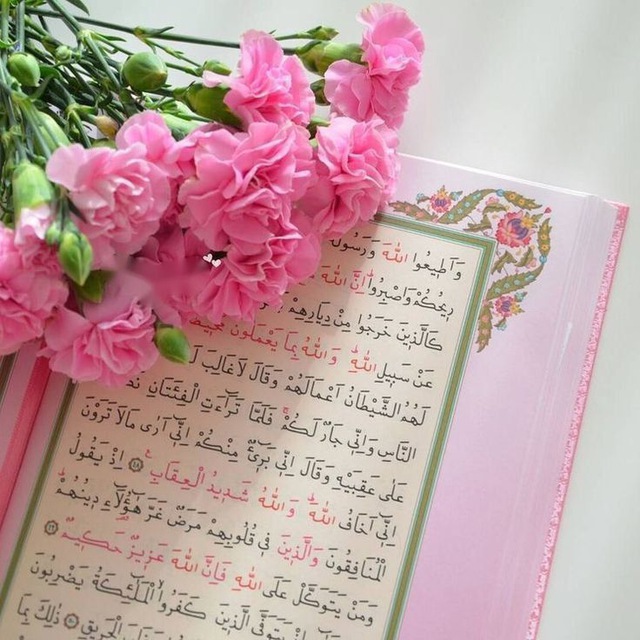 وَاَطٖيعُوا اللّٰهَ وَرَسُولَ
رٖيحُكُمْ وَاصْبِرُوا اِنَّ اللّٰهَ
كَالَّذٖينَ خَرَجُوا مِنْ دِيَارِهِمْ
عَنْ سَبٖيلِ اللّٰهِ وَاللّٰهُ بِمَا يَعْمَلُونَ مُحٖيطٌ
لَهُمُ الشَّيْطَانُ اَعْمَالَهُمْ وَقَالَ لَا غَالِبَ
النَّاسِ وَاِنّٖي جَارٌ لَكُمْ فَلَمَّا تَرَٓاءَتِ الْفِئَتَانِ
عَلٰى عَقِبَيْهِ وَقَالَ اِنّٖي بَرٖٓيءٌ مِنْكُمْ اِنّٖٓي اَرٰى مَا لَا تَرَوْنَ
اِنّٖٓي اَخَافُ اللّٰهَ وَاللّٰهُ شَدٖيدُ الْعِقَابِ ٤٨ اِذْ يَقُولُ
الْمُنَافِقُونَ وَالَّذٖينَ فٖي قُلُوبِهِمْ مَرَضٌ غَرَّ هٰٓؤُلَٓاءِ دٖينُهُمْ
وَمَنْ يَتَوَكَّلْ عَلَى اللّٰهِ فَاِنَّ اللّٰهَ عَزٖيزٌ حَكٖيمٌ ٤٩
يَتَوَفَّى الَّذٖينَ كَفَرُوا الْمَلٰٓئِكَةُ يَضْرِبُونَ
الْحَرٖيقِ ٥٠ ذٰلِكَ بِمَا